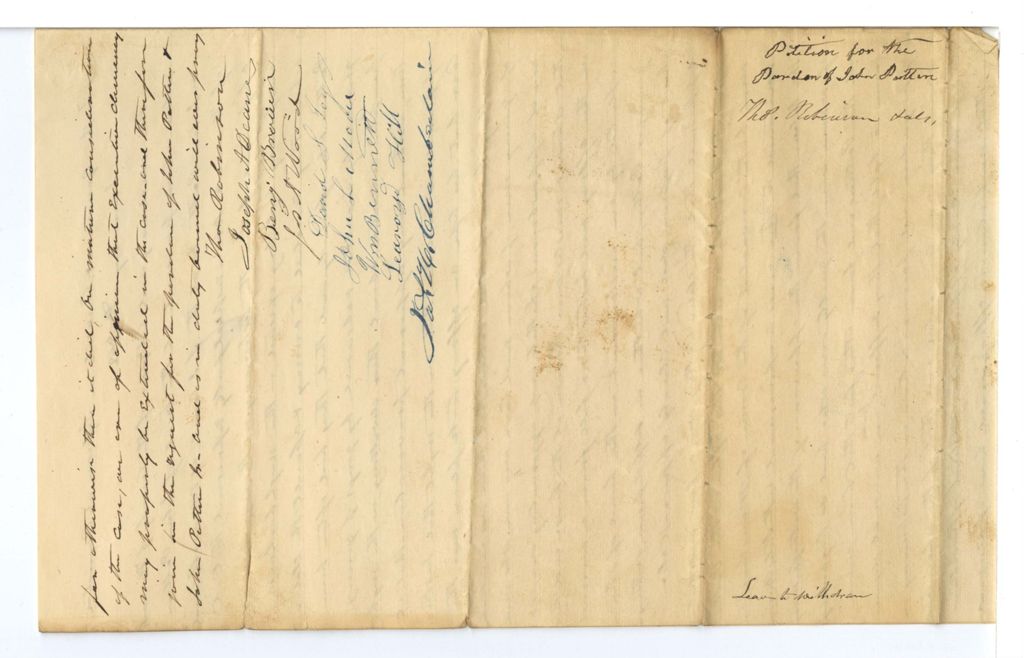 for otherwise than it did, on mature consideration
of the case, we are of opinion that Executive clemency
may properly be extended in the case and therefore
join in the request for the pardon of John Patten &
John Patten Jr. and as in duty bound will ever pray
Tho Robinson
Joseph A Deane
Benj Brown
J. A. Wood
David S.
John L. Moor
Wm Bennett
Learoyd Hill
Chamberlain
Petition for the
Pardon of John Patten
Tho. Robinson & als.
Leave to withdraw